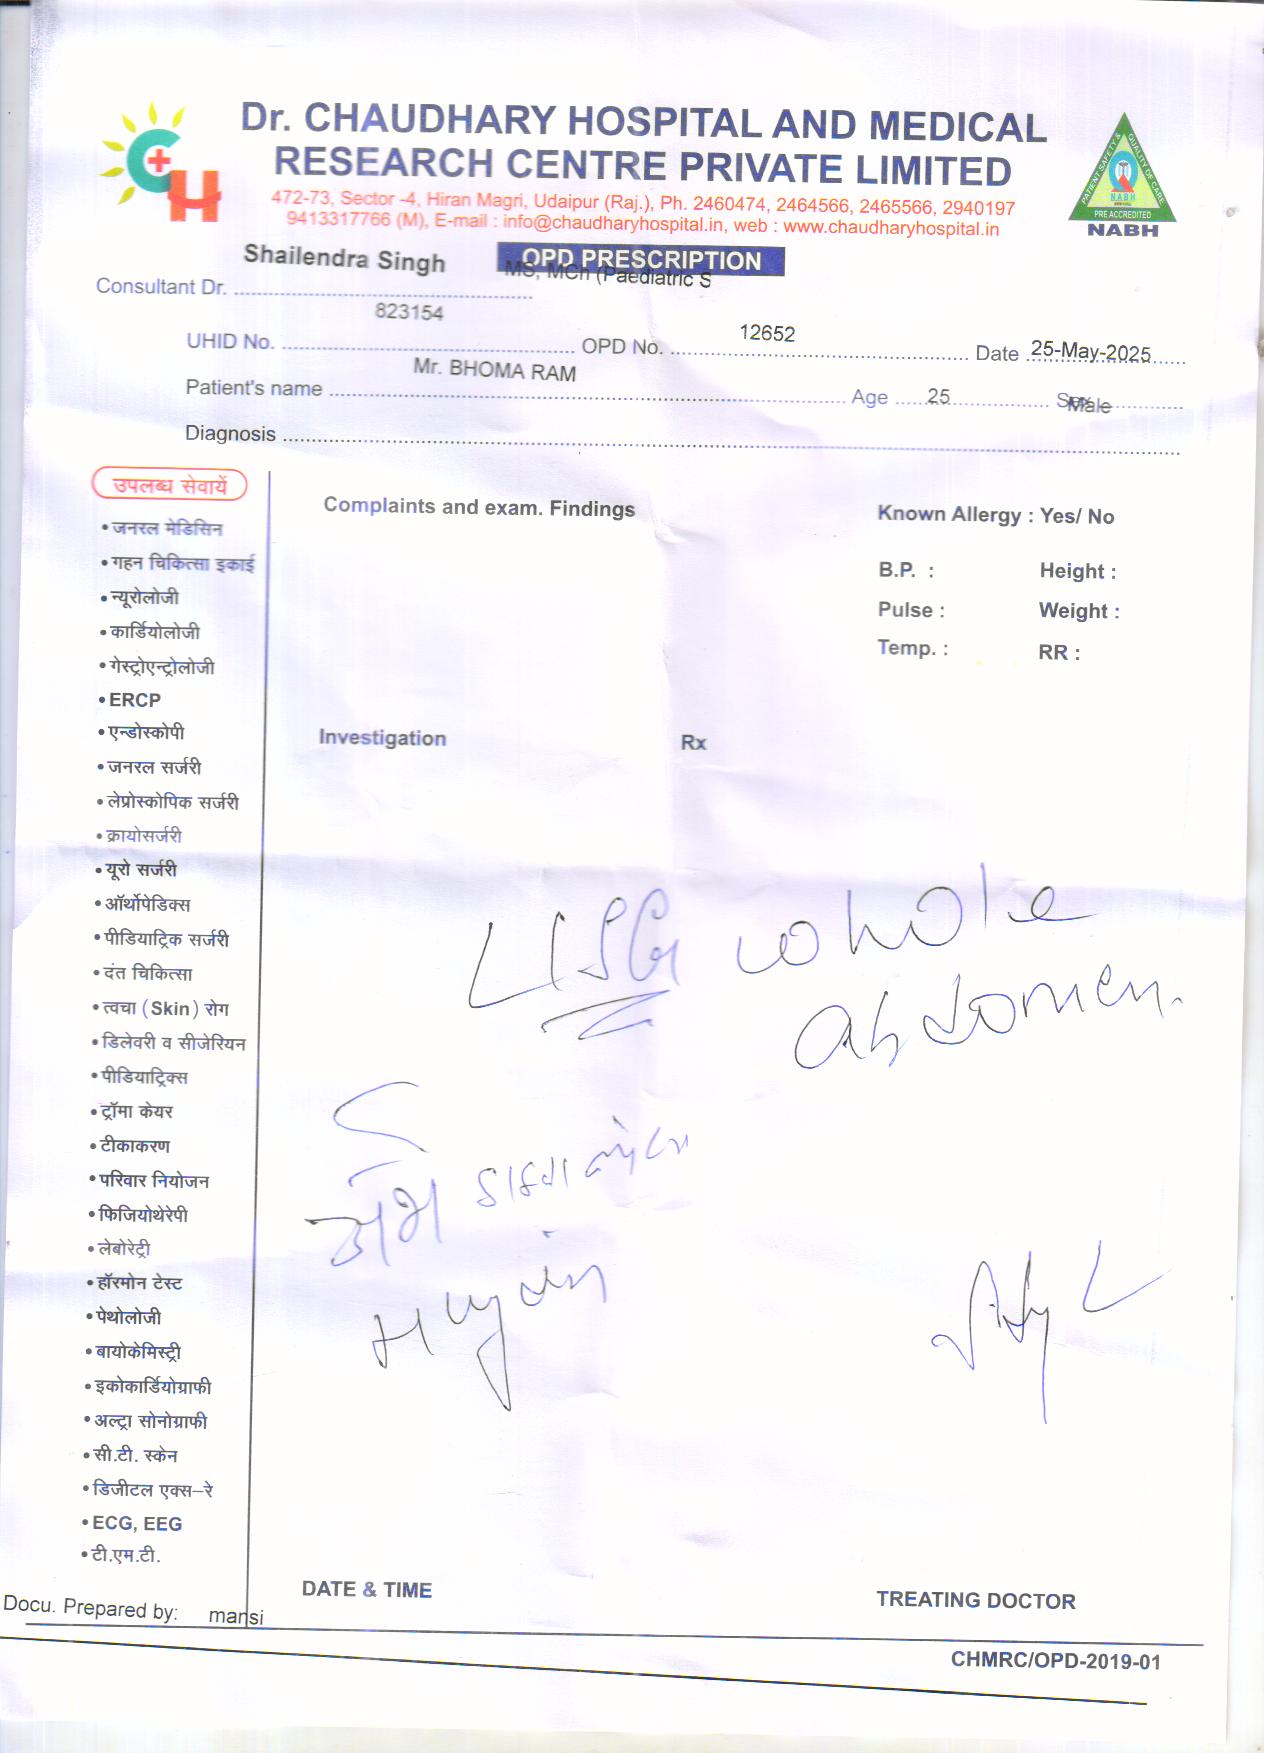 Dr. CHAUDHARY HOSPITAL AND MEDICAL
RESEARCH CENTRE PRIVATE LIMITED
472-73, Sector -4, Hiran Magri, Udaipur (Raj.), Ph. 2460474, 2464566, 2465566, 2940197
9413317766 (M), E-mail : info@chaudharyhospital.in, web : www.chaudharyhospital.in
CH
PATIENT SAFETY & QUALITY OF CARE
NABH
PRE ACCREDITED
NABH
OPD PRESCRIPTION
Shailendra Singh
MS, MCh (Paediatric S
Consultant Dr.
UHID No. 823154 OPD No. 12652 Date 25-May-2025
Patient's name Mr. BHOMA RAM Age 25 Sex Male
Diagnosis
उपलब्ध सेवायें
• जनरल मेडिसिन
• गहन चिकित्सा इकाई
• न्यूरोलोजी
• कार्डियोलोजी
• गेस्ट्रोएन्ट्रोलोजी
• ERCP
• एन्डोस्कोपी
• जनरल सर्जरी
• लेप्रोस्कोपिक सर्जरी
• क्रायोसर्जरी
• यूरो सर्जरी
• ऑर्थोपेडिक्स
• पीडियाट्रिक सर्जरी
• दंत चिकित्सा
• त्वचा (Skin) रोग
• डिलेवरी व सीजेरियन
• पीडियाट्रिक्स
• ट्रॉमा केयर
• टीकाकरण
• परिवार नियोजन
• फिजियोथेरेपी
• लेबोरेट्री
• हॉरमोन टेस्ट
• पेथोलोजी
• बायोकेमिस्ट्री
• इकोकार्डियोग्राफी
• अल्ट्रा सोनोग्राफी
• सी.टी. स्केन
• डिजीटल एक्स–रे
• ECG, EEG
• टी.एम.टी.
Complaints and exam. Findings
Known Allergy : Yes/ No
B.P. : Height :
Pulse : Weight :
Temp. : RR :
Investigation Rx
USG whole
abdomen.
DATE & TIME
TREATING DOCTOR
Docu. Prepared by: mansi
CHMRC/OPD-2019-01